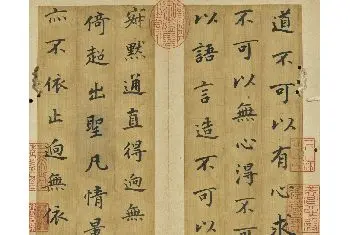 道不可以有心求
不可以無心得不可
以語言造不可以
寂默通直得迥無
倚超出聖凡情量
亦不依止迥無依